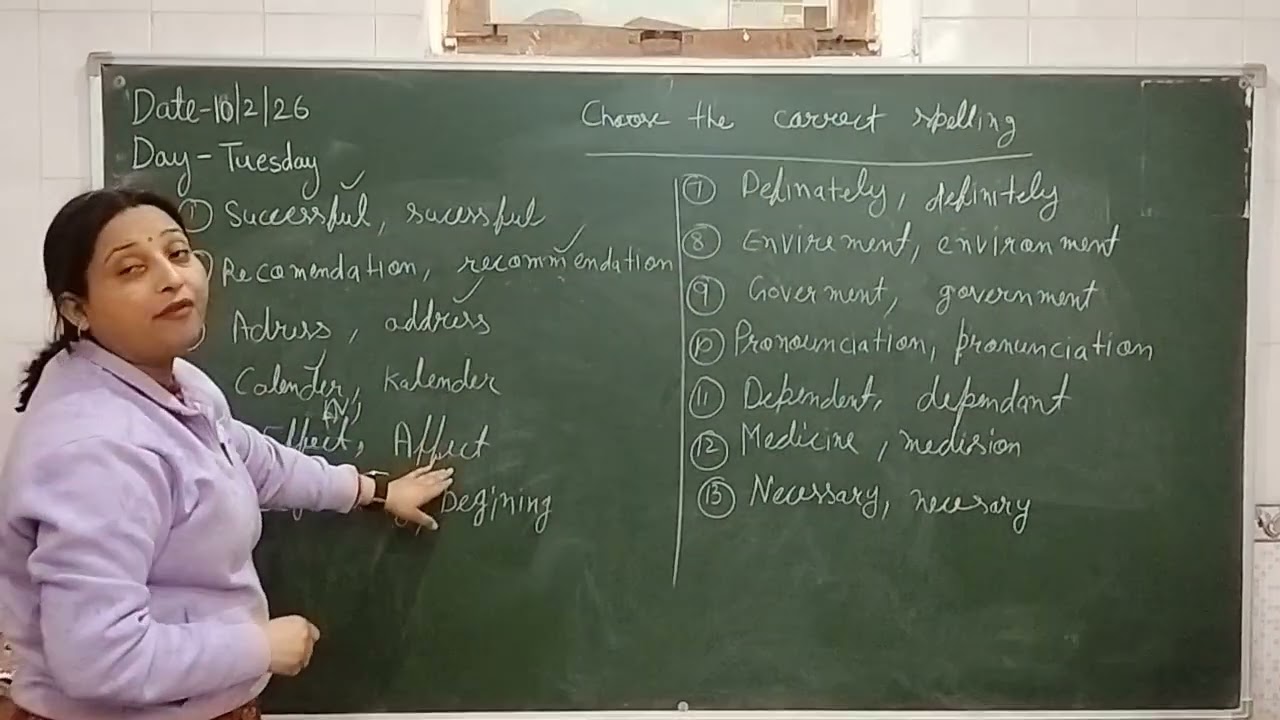 Date-10/2/26
Day-Tuesday
Choose the correct spelling
① Successful, sucessful
Recomendation, recommendation
Adress, address
Calender, Kalender
Effect, Affect
Begining
⑦ Definately, definitely
⑧ Envirement, environment
⑨ Goverment, government
⑩ Pronounciation, pronunciation
⑪ Dependent, dependant
⑫ Medicine, medision
⑬ Necessary, necesary